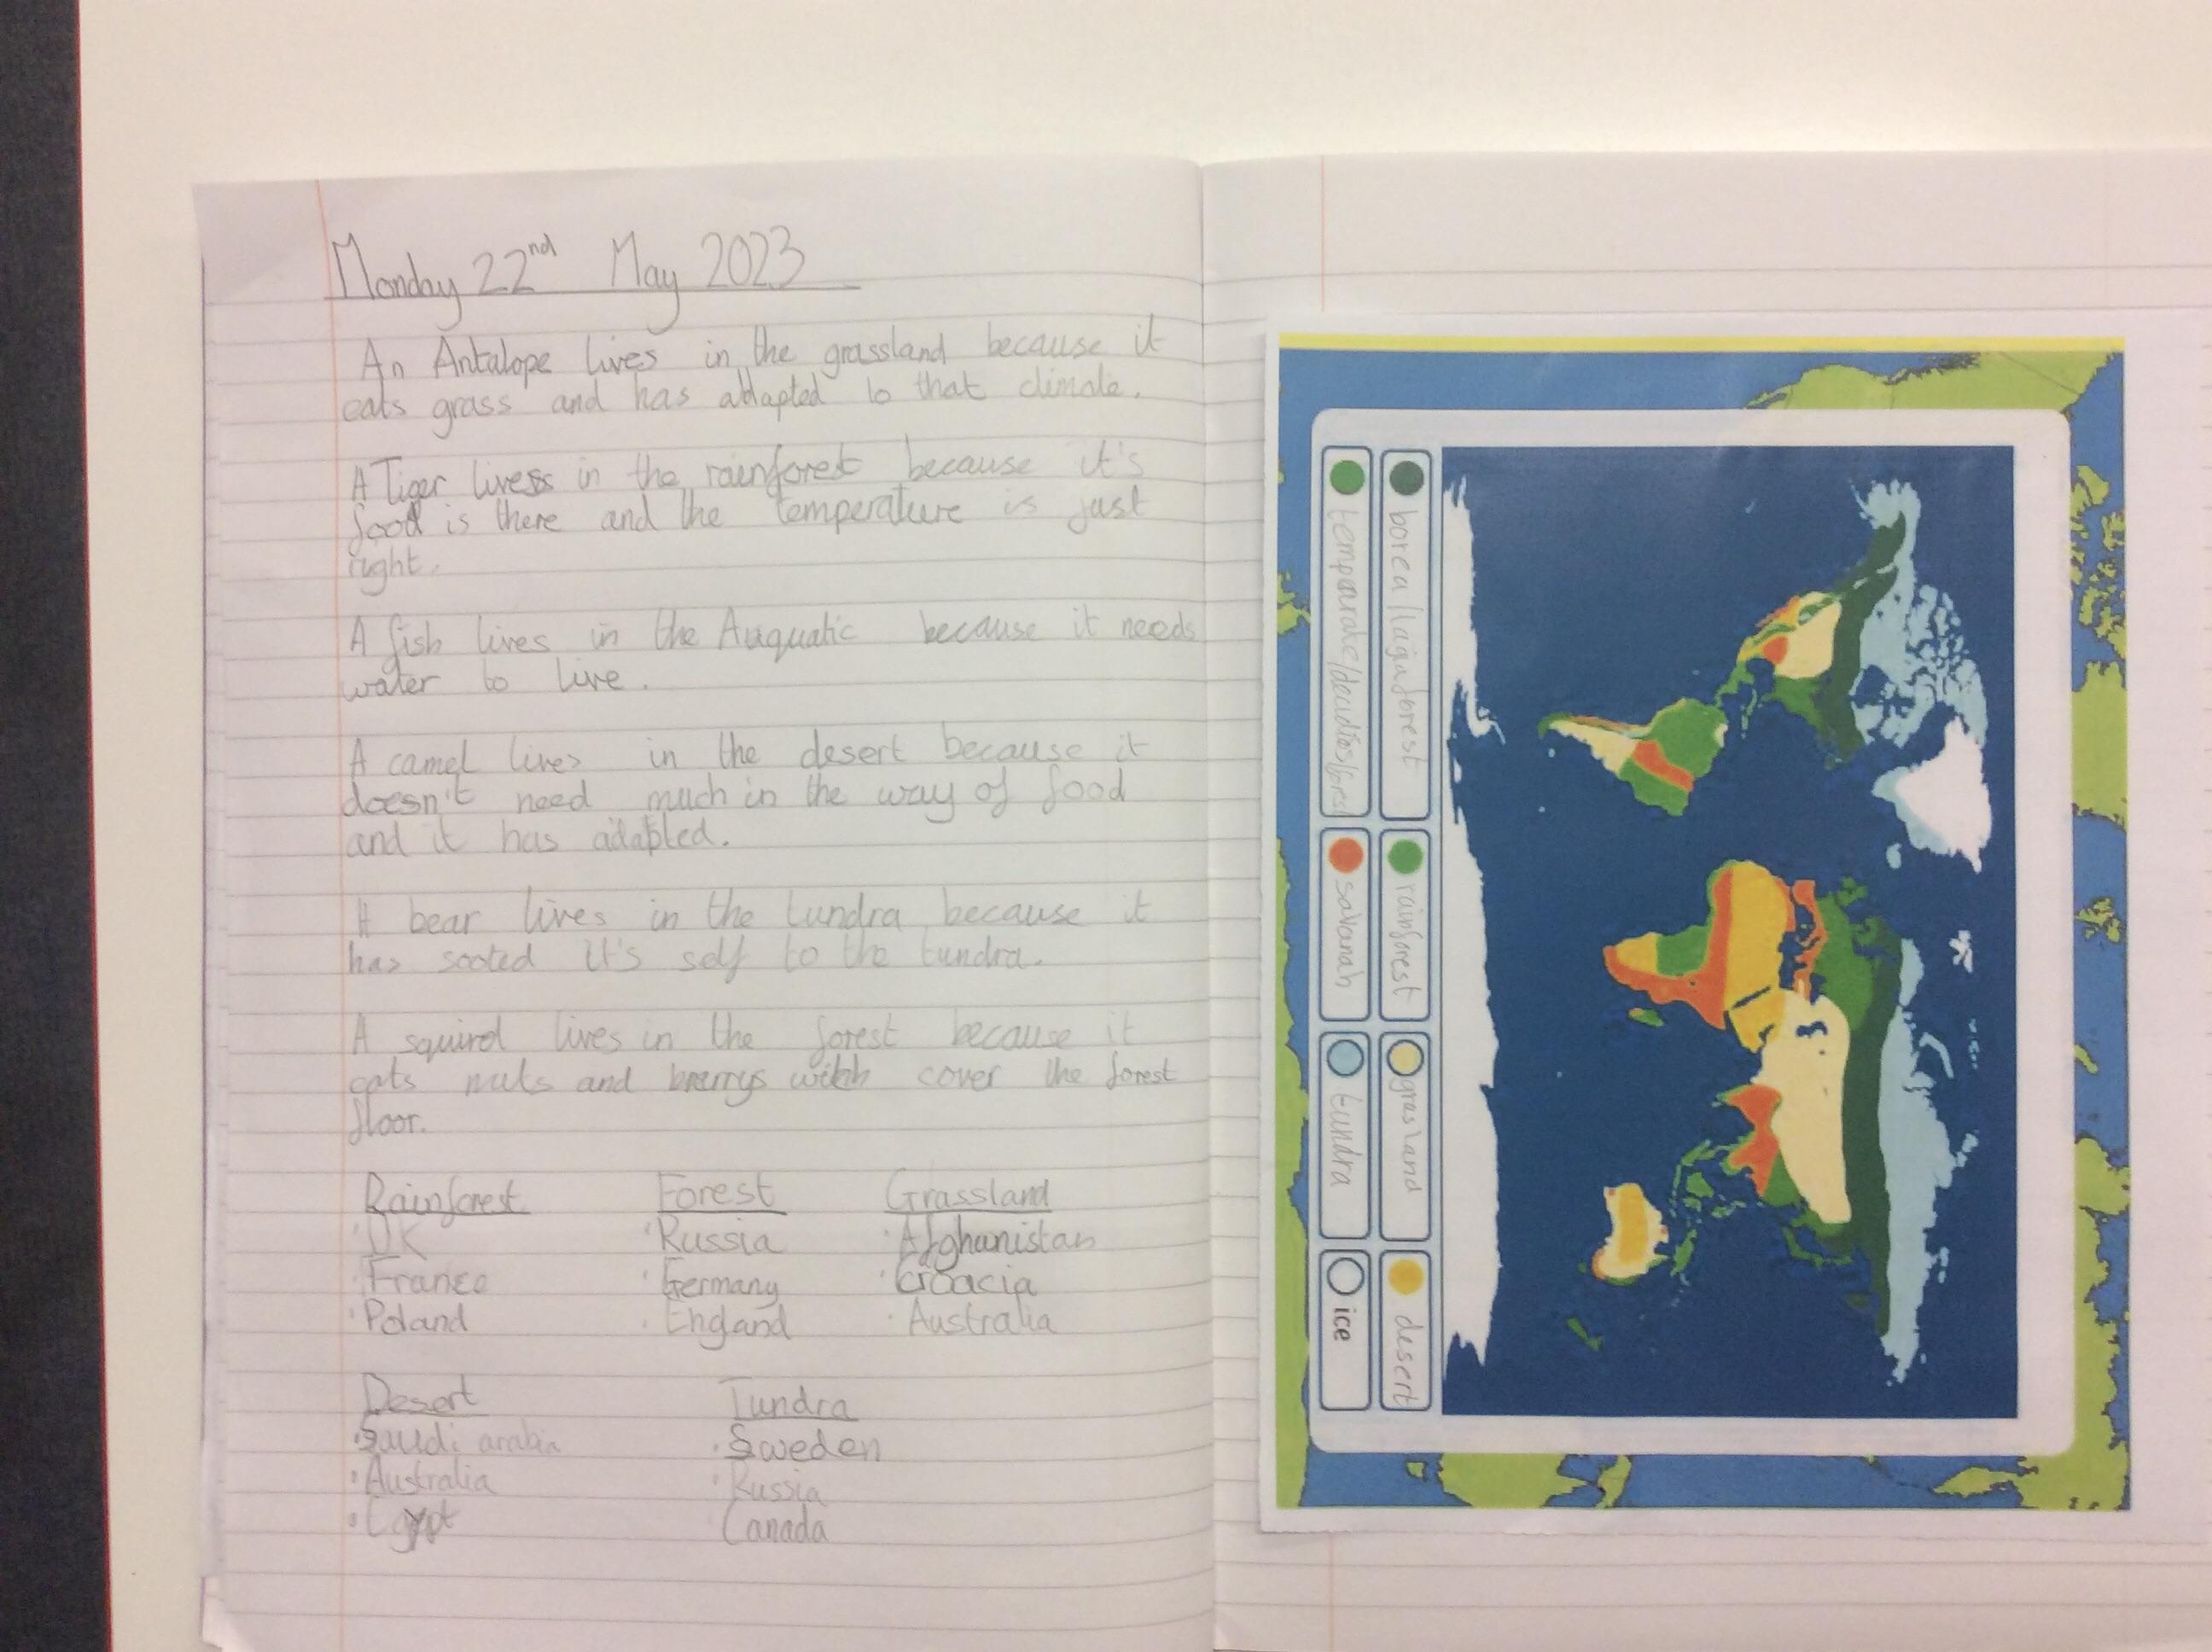 Monday 22nd May 2023
An Antalope lives in the grassland because it
eats grass and has adapted to that climate.
A Tiger lives in the rainforest because it's
food is there and the temperature is just
right.
A fish lives in the Auquatic because it needs
water to live.
A camel lives in the desert because it
doesn't need much in the way of food
and it has adapted.
A bear lives in the tundra because it
has sooted it's self to the tundra.
A squirel lives in the forest because it
eats nuts and berrys witch cover the forest
floor.
Rainforest Forest Grassland
· UK · Russia · Afghanistan
· France · Germany · Croacia
· Poland · England · Australia
Desert Tundra
· Saudi arabia · Sweden
· Australia · Russia
· Egypt Canada
boreal/taiga forest rainforest grasland desert
temparate/decidios forest savanah tundra ice